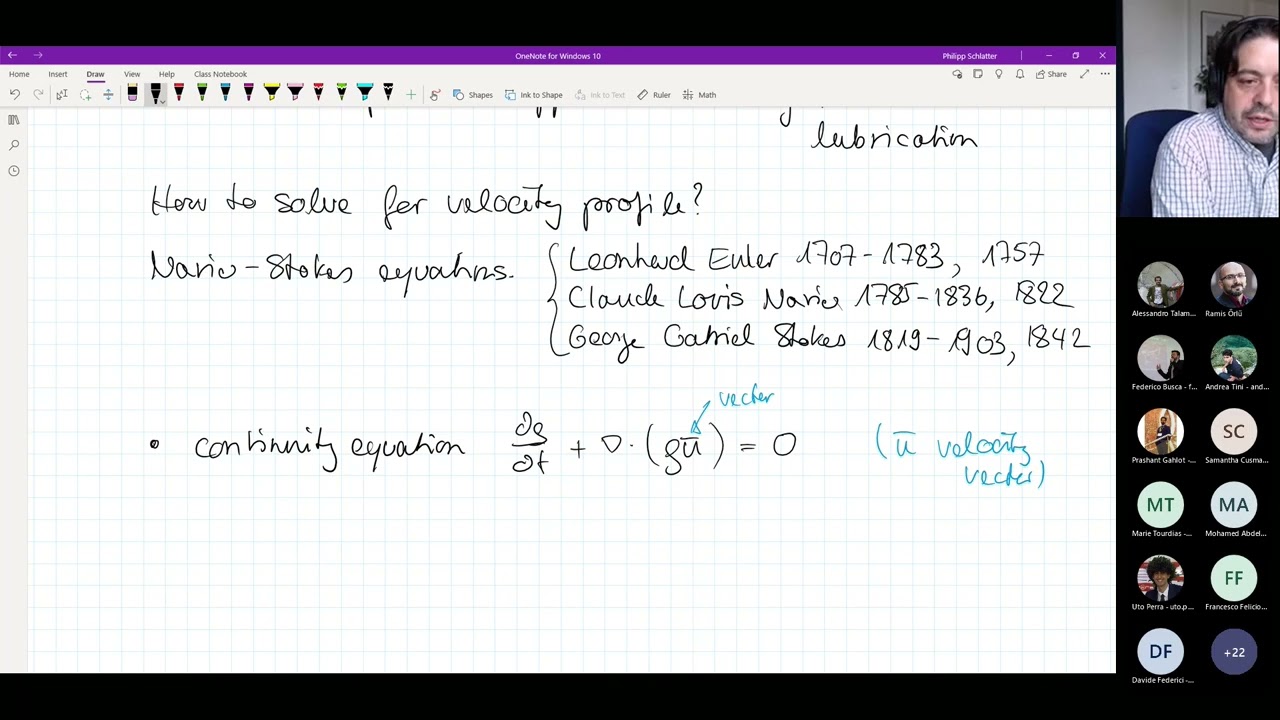 OneNote for Windows 10
Philipp Schlatter
Home Insert Draw View Help Class Notebook
Share
Shapes Ink to Shape Ink to Text Ruler Math
lubrication
How to solve for velocity profile?
Navier-Stokes equations.
Leonhard Euler 1707-1783, 1757
Claude Louis Navier 1785-1836, 1822
George Gabriel Stokes 1819-1903, 1842
vector
• continuity equation ∂ρ/∂t + ∇·(ρū) = 0 (ū velocity
vector)
Alessandro Talam... Ramis Örlü
Federico Busca - f... Andrea Tini - and...
Prashant Gahlot -... SC Samantha Cusma...
MT MA
Marie Tourdias -... Mohamed Abdel...
FF
Uto Perra - uto.p... Francesco Felicio...
DF +22
Davide Federici -...